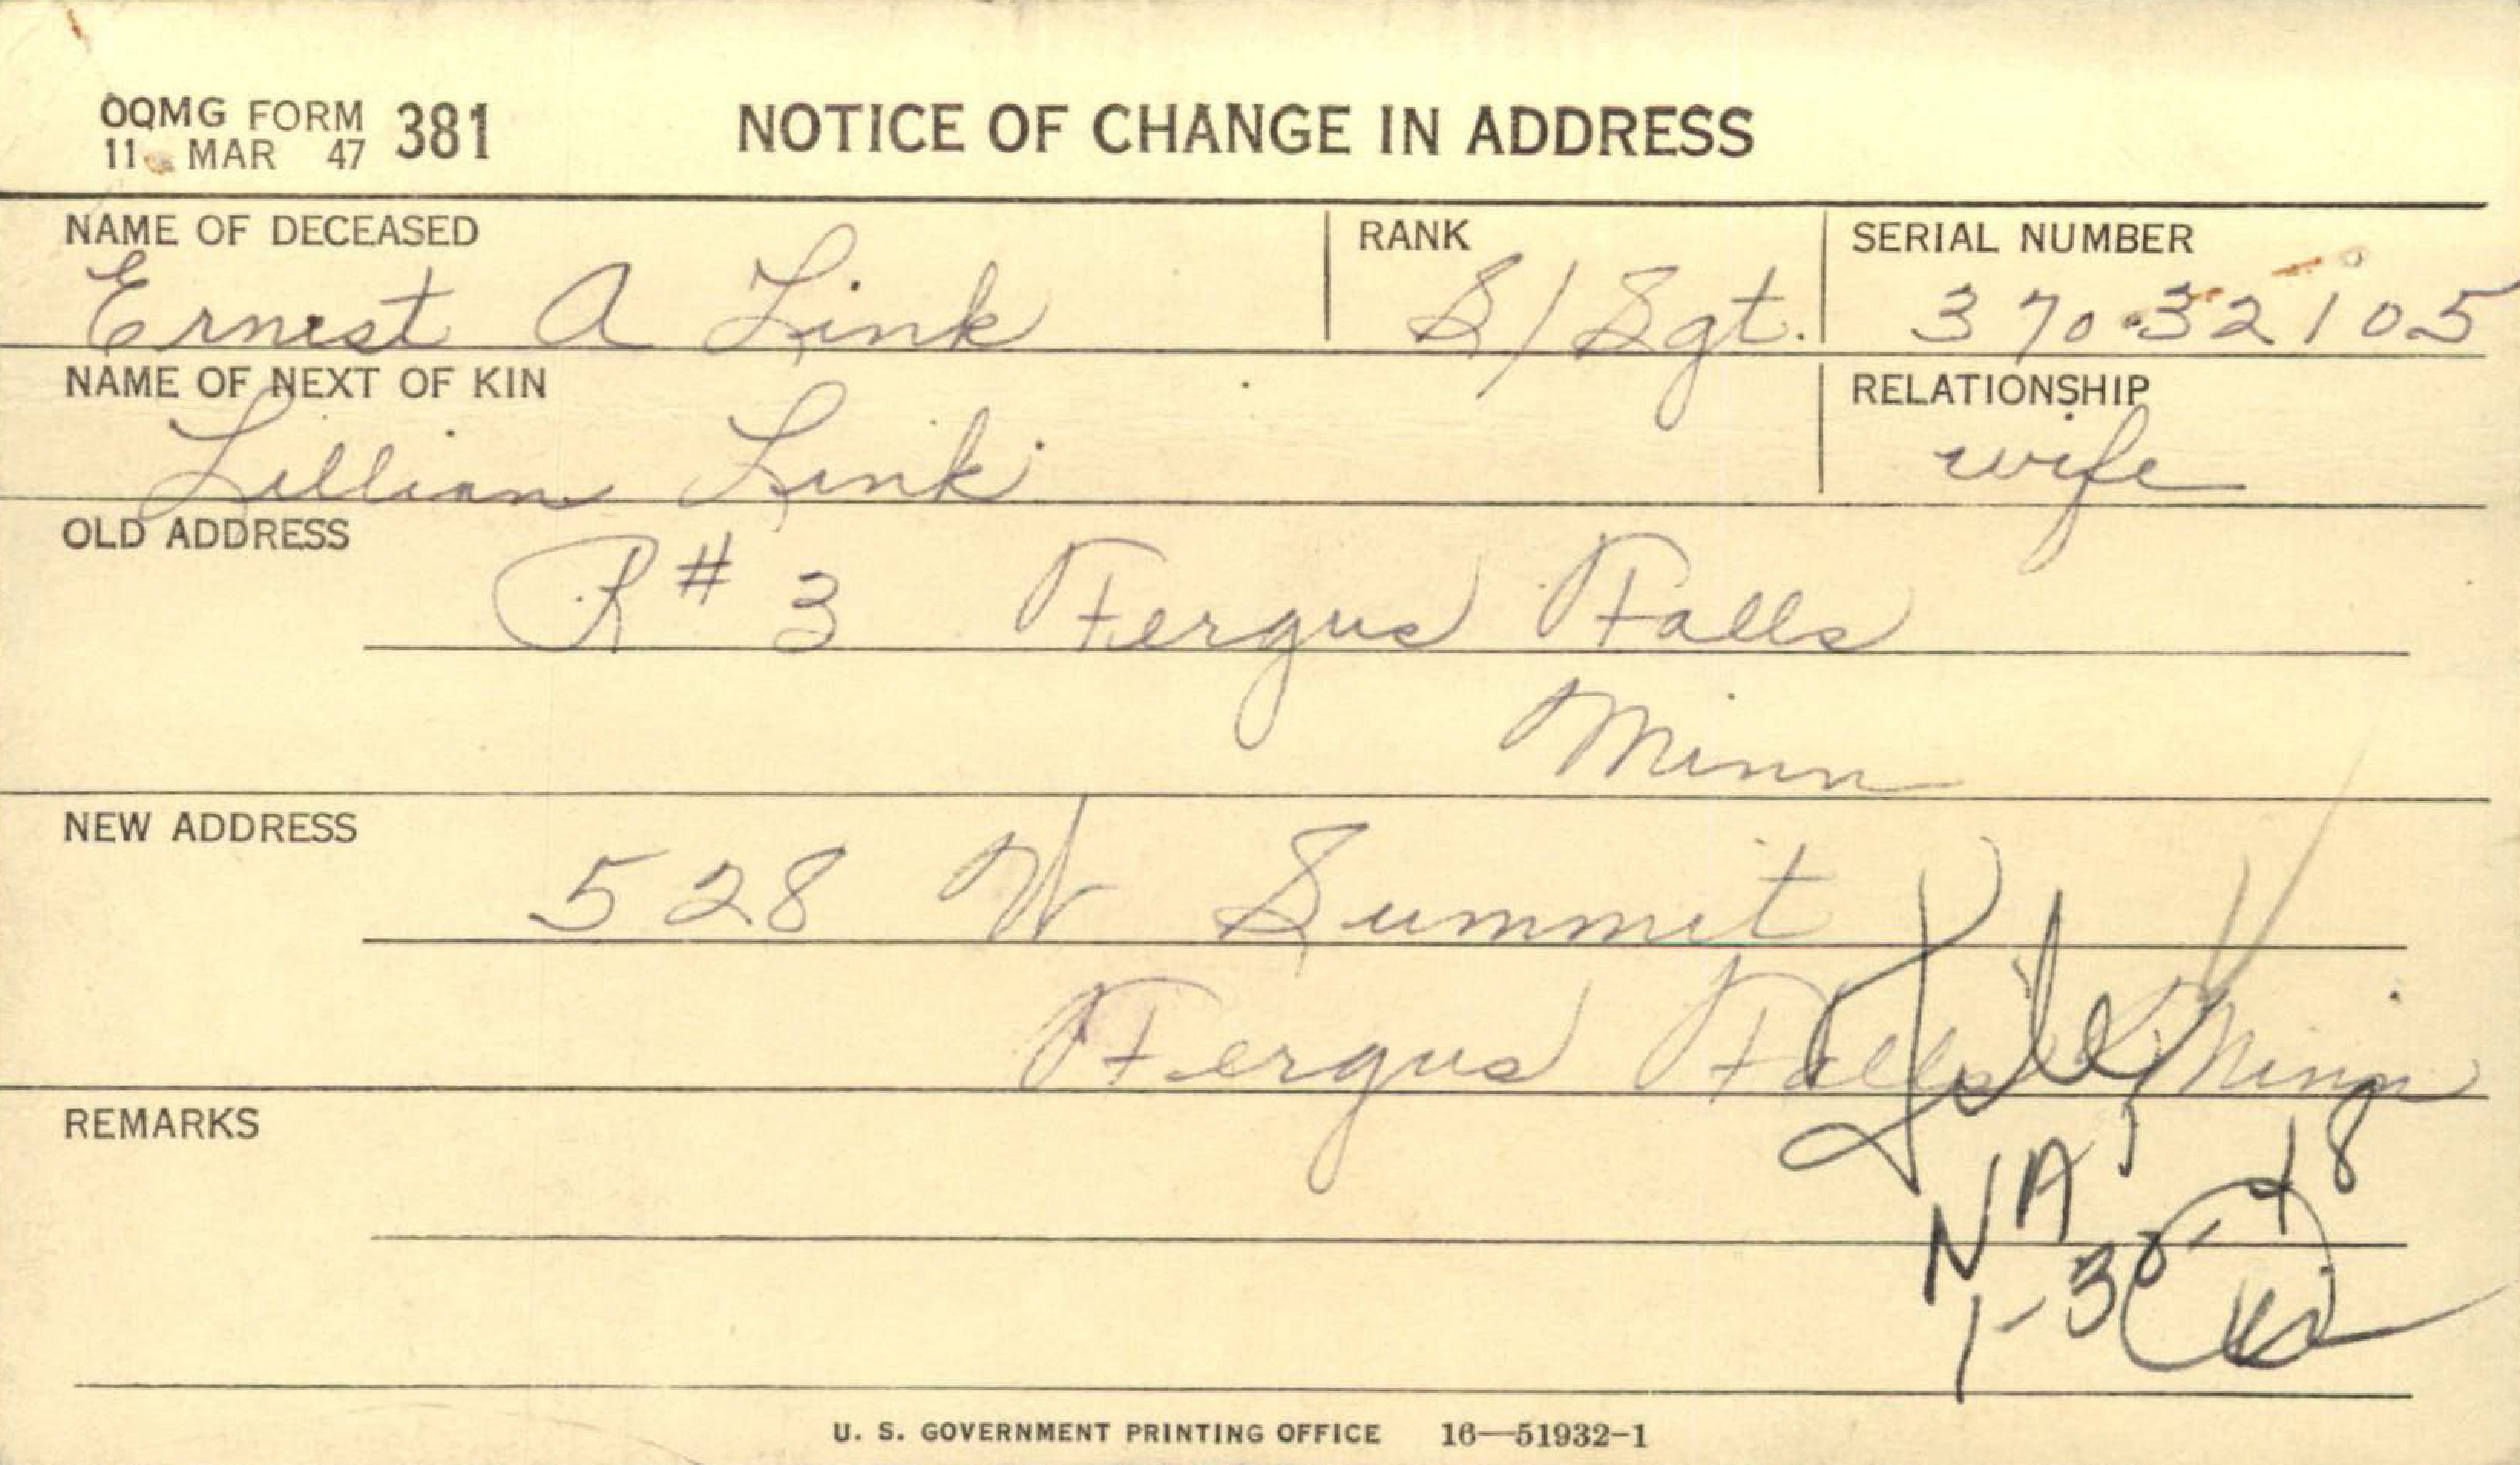 OQMG FORM 381
11 MAR 47
NOTICE OF CHANGE IN ADDRESS
NAME OF DECEASED
Ernest A Link
RANK
S/Sgt.
SERIAL NUMBER
37032105
NAME OF NEXT OF KIN
Lillian Link
RELATIONSHIP
wife
OLD ADDRESS
R# 3 Fergus Falls
Minn
NEW ADDRESS
528 W Summit
Fergus Falls Minn
File
REMARKS
NA
1-30-48
U. S. GOVERNMENT PRINTING OFFICE 16—51932-1